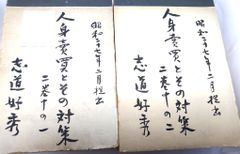 昭和三十七年二月提出
人身賣買とその対策
二巻中の一
志道好秀
昭和三十七年二月提出
人身賣買とその対策
二巻中の二
志道好秀